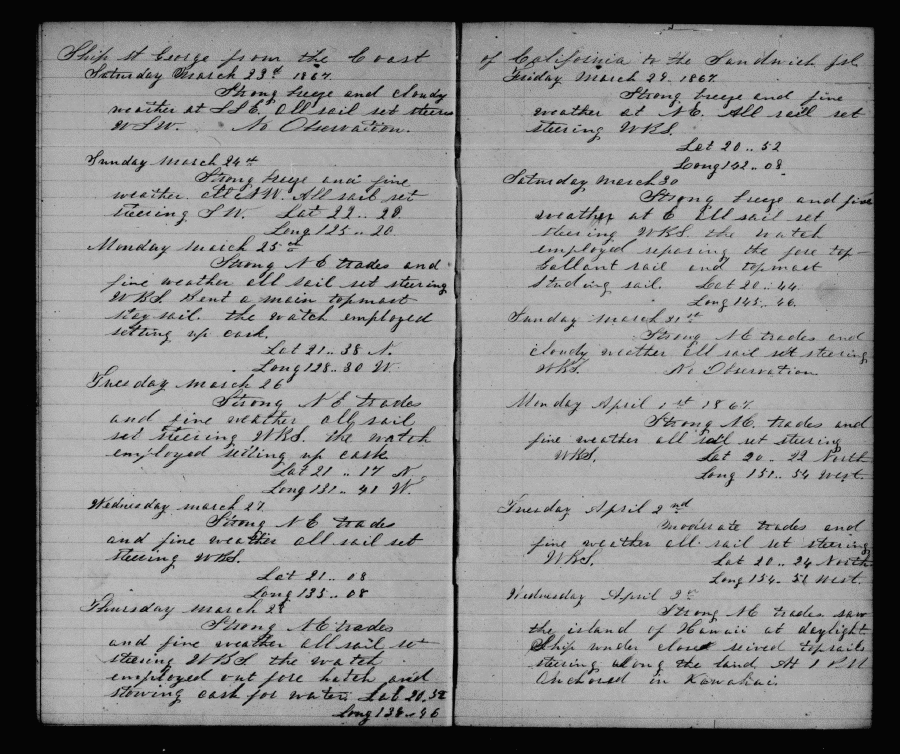 Ship St George from the Coast
Saturday March 23d 1867
Strong breeze and cloudy
weather at SSE. All sail set steering
WSW. No Observation.
Sunday March 24th
Strong breeze and fine
weather. at NW. All sail set
steering SW. Lat 22.. 28
Long 125.. 20
Monday March 25th
Strong NE trades and
fine weather all sail set steering
WBS Bent a main topmast
stay sail. the watch employed
setting up cask.
Lat 21.. 38 N.
Long 128.. 30 W.
Tuesday March 26
Strong NE trades
and fine weather all sail
set steering WBS. the watch
employed setting up cask
Lat 21.. 17 N
Long 131.. 41 W.
Wednesday March 27
Strong NE trades
and fine weather all sail set
steering WBS.
Lat 21.. 08
Long 135.. 08
Thursday March 28
Strong NE trades
and fine weather all sail set
steering WBS the watch
employed out fore hatch and
stowing cask for water Lat 20,52
Long 138.. 46
of California to the Sandwich Isl
Friday March 29. 1867.
Strong breeze and fine
weather at NE. All sail set
steering WBS.
Lat 20.. 52
Long 142.. 08
Saturday March 30
Strong breeze and fine
weather at E All sail set
steering WBS. the watch
employed reparing the fore top-
Gallant sail and topmast
studing sail. Lat 20.. 44
Long 145.. 46
Sunday March 31st
Strong NE trades and
cloudy weather All sail set steering
WBS. No Observation
Monday April 1st 1867.
Strong NE. trades and
fine weather all sail set steering
WBS. Lat 20.. 22 North
Long 151.. 54 West.
Tuesday April 2nd
Moderate trades and
fine weather all sail set steering
WBS. Lat 20.. 24 North
Long 154.. 51 West.
Wednesday April 3d
Strong NE trades saw
the island of Hawaii at daylight
Ship under close reived topsails
steering along the land At 1 PM
Anchored in Kawahai.